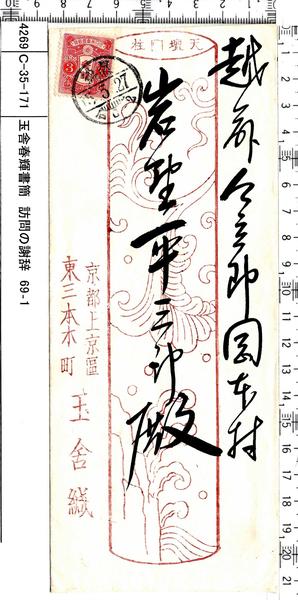 越前今立郎岡本村
岩野平三郎殿
京都上京區
東三本木町
玉舍織
天璣門柱
3
4269 C-35-171 玉舍春輝書簡 訪問の謝辞 69-1